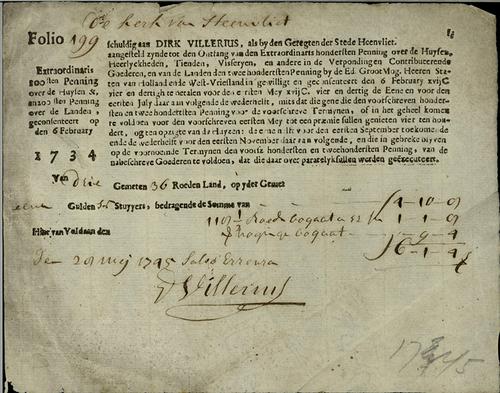 De Kerk van Heenvliet
Folio 199
schuldig aan DIRK VILLERIUS, als by den Geregten der Stede Heenvliet.
aangesteld zynde tot den Ontfang van den Extraordinaris hondersten Penning over de Huysen,
Heerlyckheden, Tienden, Visseryen, en andere in de Verpondingen Contribueerende
Goederen, en van de Landen de twee honderstenPenning by de Ed. Groot Mog. Heeren Staten
van Holland ende West-Vriesland in gewilligt en geconsenteert den 6 February xvijC
vier en dertigh te betalen voor den eersten Mey xvijC. vier en dertig de Eene en voor den
eersten July daar aan volgende de wederhelft, mits dat die gene die den voorschreven honder-
sten en twee hondersten Penning voor de voorschreve Termynen, of in het geheel komen
te voldoen voor den voorschreven eersten Mey tot een præmie sullen genieten vier ten hon-
dert, en ten opzigte van de Huysen: de eene helft voor den eersten September toekomende
en de wederhelft voor den eersten November daar aan volgende, en die in gebreke blyven
op de voornoemde Termynen den voorsz hondersten en twee hondersten Penning, van de
nabeschreve Goederen te voldoen, dat die daar over paratelyk sullen werden geëxecuteert.
Extraordinaris
100sten Penning
over de Huysen &c.
en 200sten Penning
over de Landen
geconsenteert op
den 6 February
1734
Van drie Gemeten 36 Roeden Land, op yder Gemet
Gulden Stuyvers, bedragende de Somme van
Hier van Voldaan den
Den 20 Mey 1745 Salvo Errore
D Villerius
1745